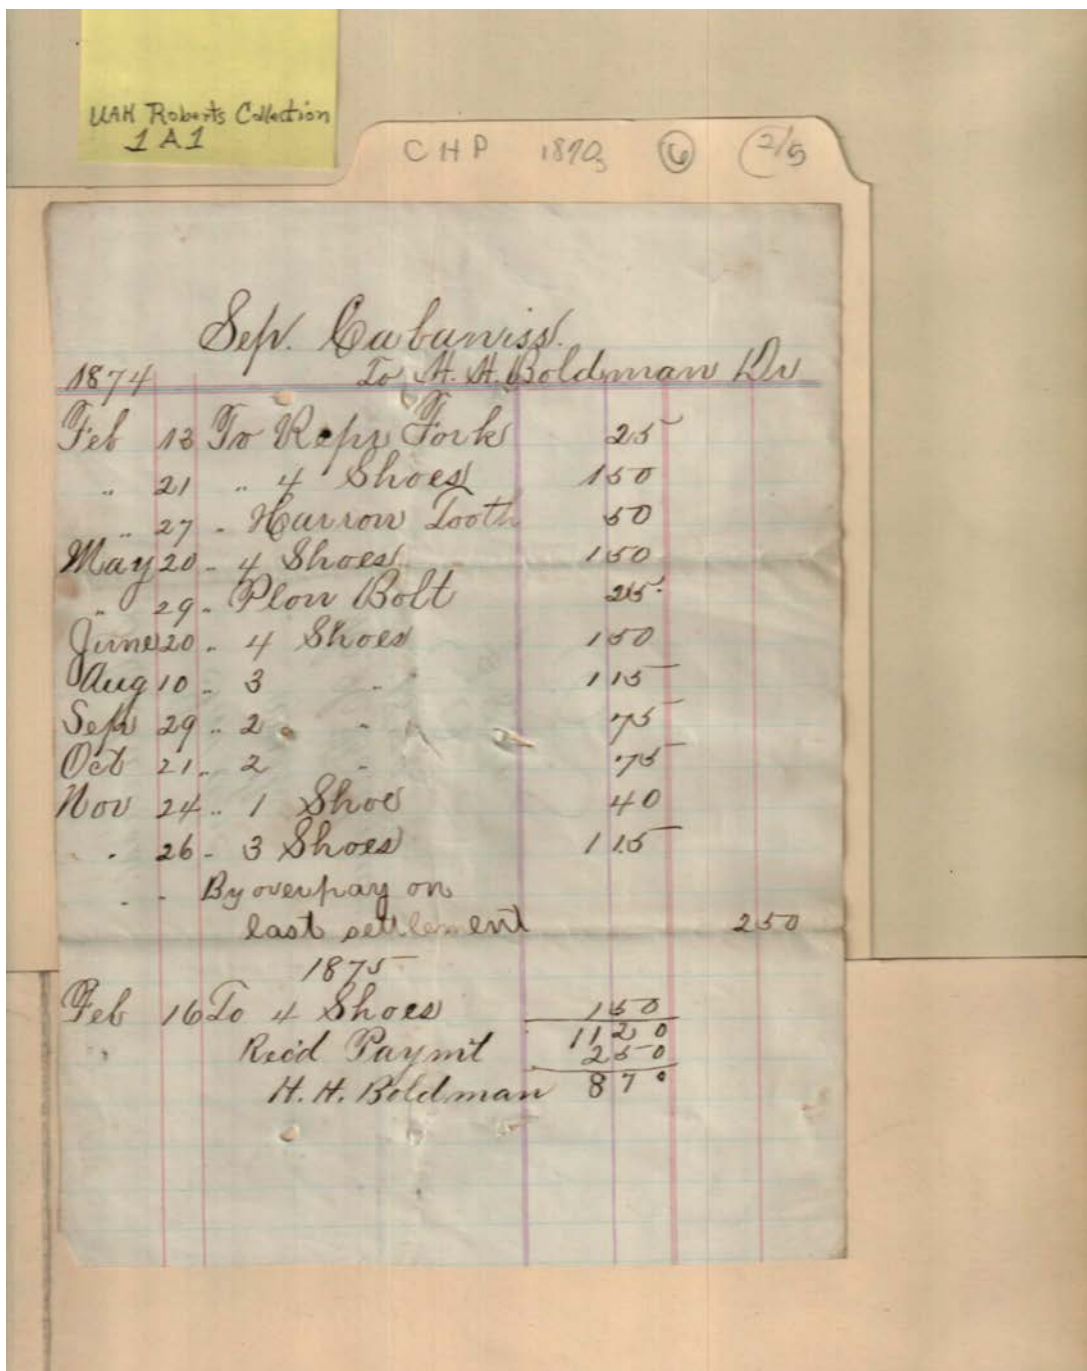 UAH Roberts Collection
1A1
CHP 1870s 6 2/5
Sep. Cabaniss.
1874 To H. H. Boldman Dr
Feb 13 To Repr Fork 25
" 21 " 4 Shoes 150
" 27 " Harrow Tooth 50
May 20 " 4 Shoes 150
" 29 " Plow Bolt 25
June 20 " 4 Shoes 150
Aug 10 " 3 " 115
Sept 29 " 2 " 75
Oct 21 " 2 " 75
Nov 24 " 1 Shoe 40
" 26 " 3 Shoes 115
" " By overpay on
last settlement 250
1875
Feb 16 To 4 Shoes 150
1120
Recd Paymt 250
H. H. Boldman 870